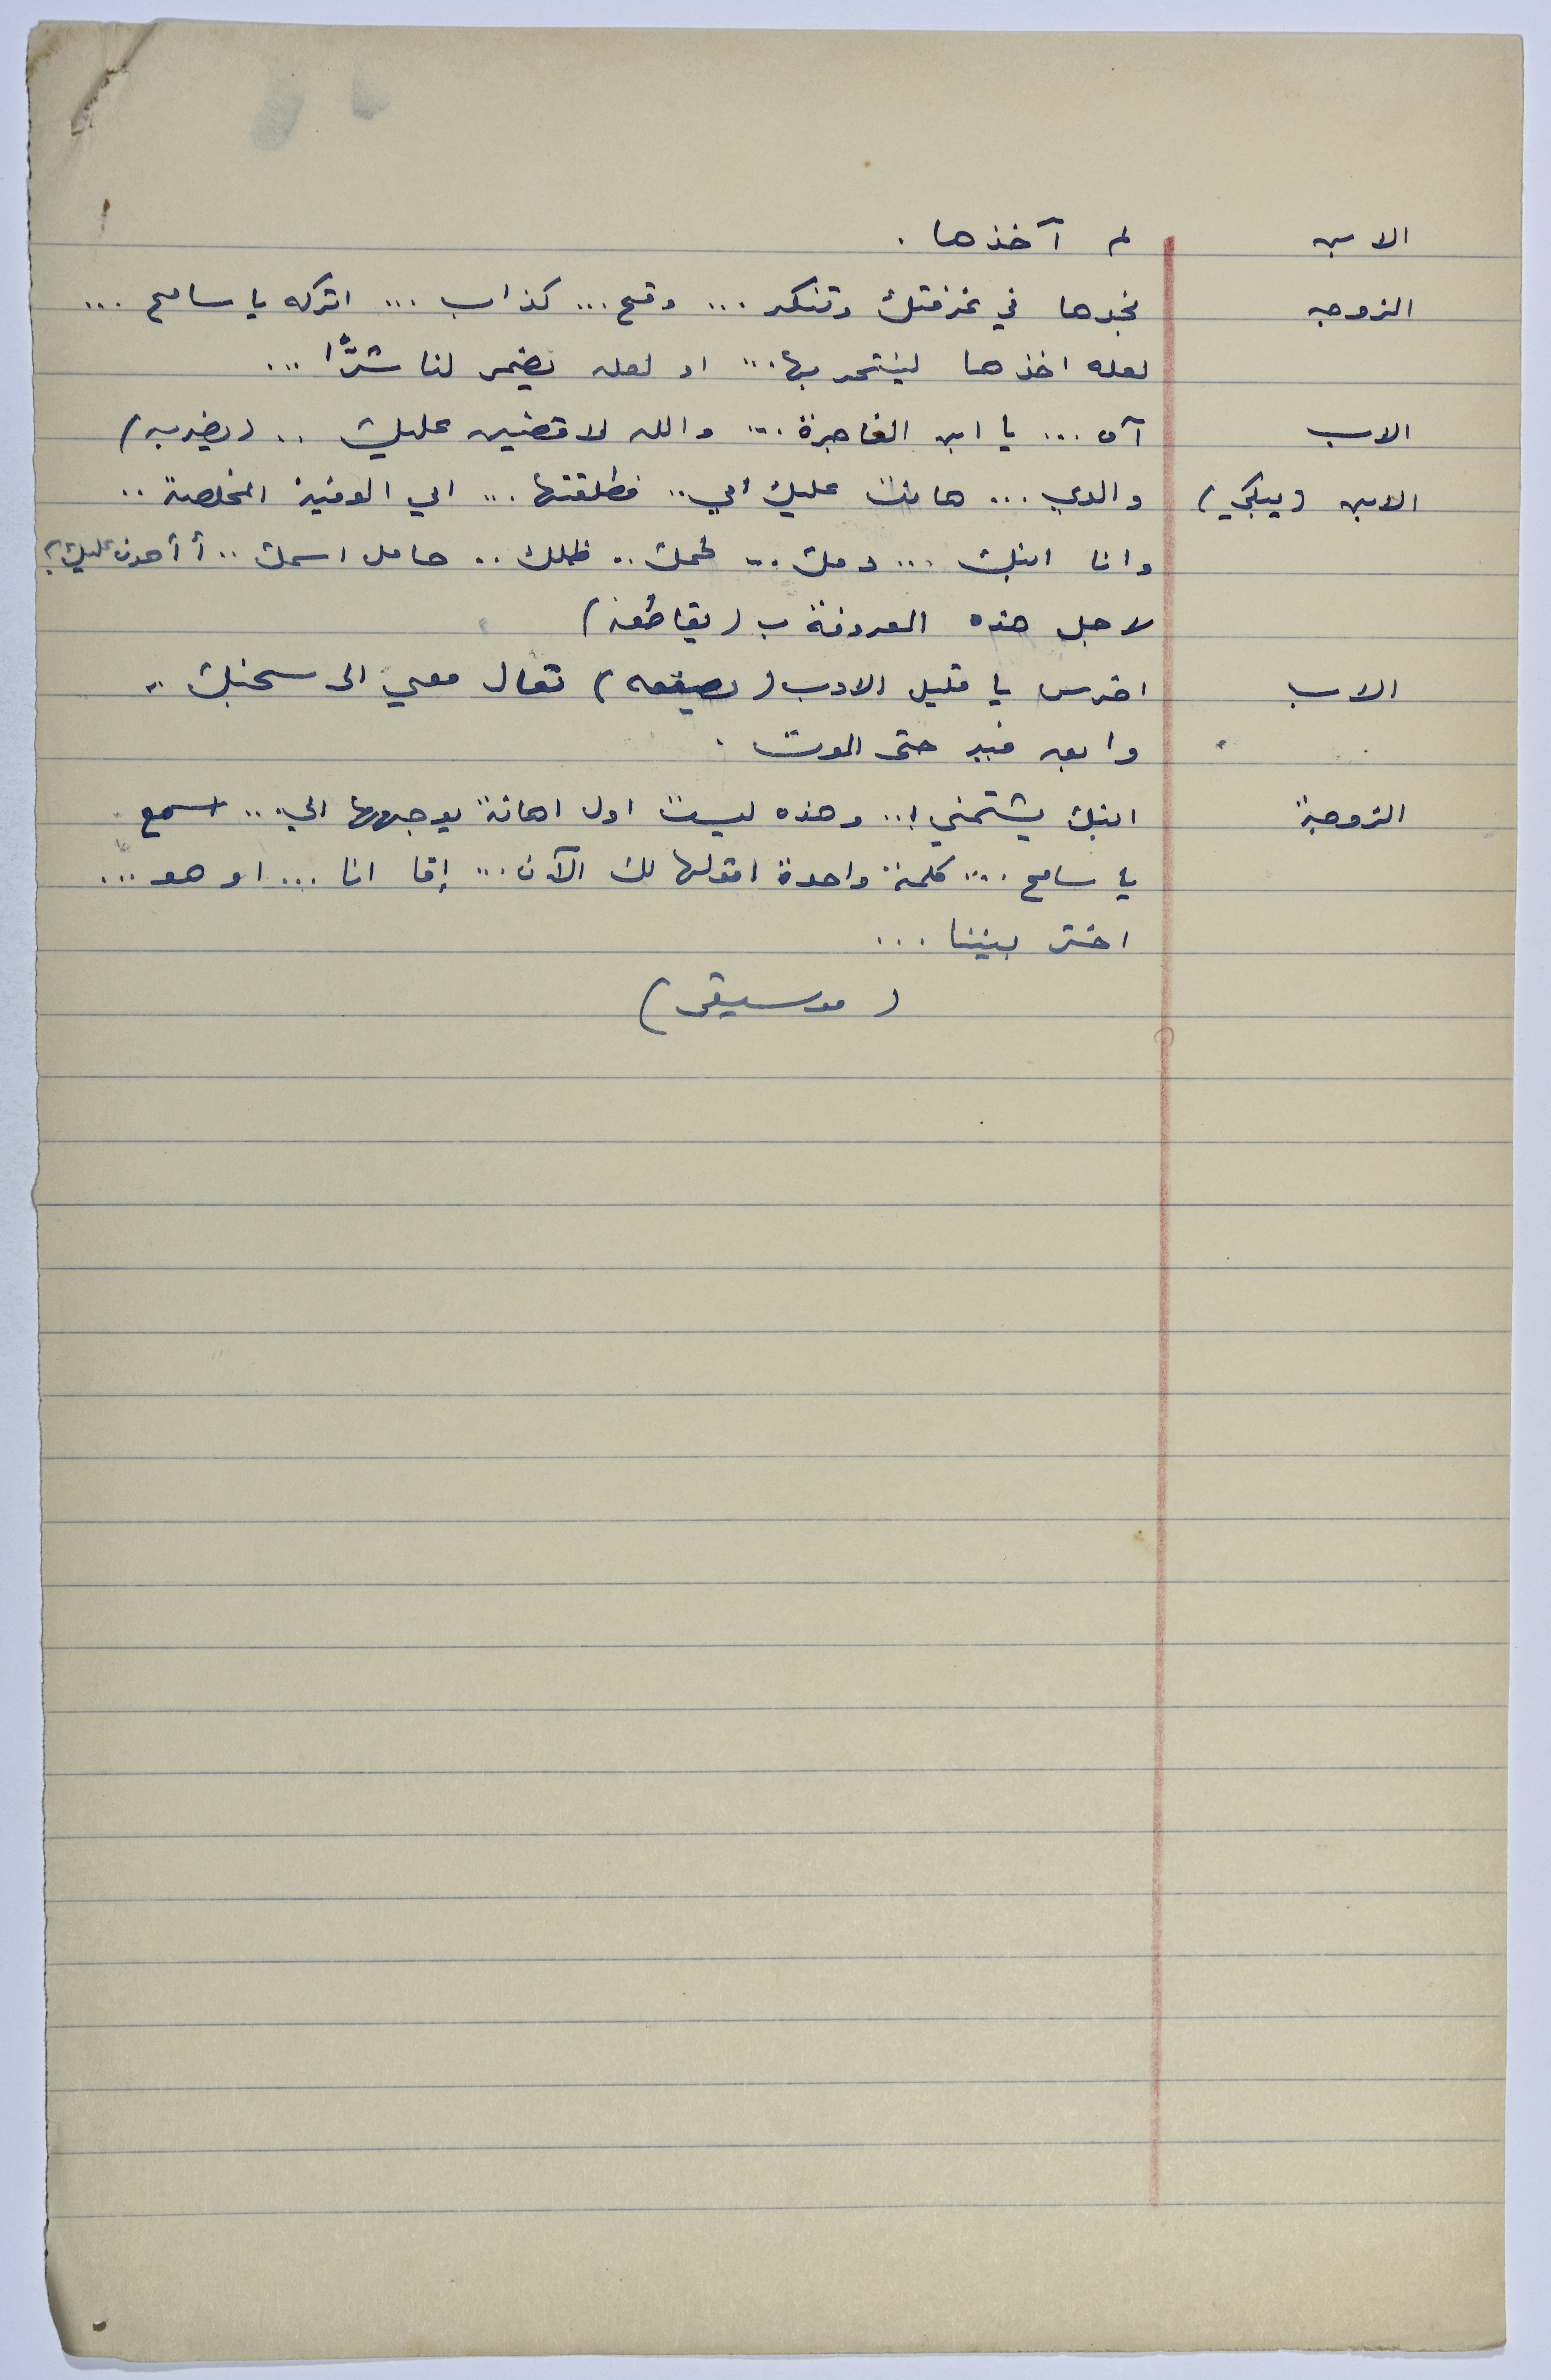 الابن لم آخذها .
الزوجه نجدها في غرفتك وتنكر ... وقح ... كذاب ... اتركه يا سامح ...
لعله اخذها لينتحر بها ... او لعله يضمر لنا شرًّا ...
الاب آه ... يا ابن الفاجرة ... والله لاقضين عليك .. (يضربه)
الابن (يبكي) والدي ... هانت عليك أمي .. فطلقتها ... امي الوفية المخلصة ..
وانا ابنك ... دمك .. لحمك .. ظلك .. حامل اسمك .. أ أهون عليك ؟
لاجل هذه المعروفة ب (يقاطعه)
الاب اخرس يا قليل الادب (يصفعه) تعال معي الى سجنك ..
وابق فيه حتى الموت .
الزوجة ابنك يشتمني ! .. وهذه ليست اول اهانة يوجهها الي ... اسمع
يا سامح ... كلمة واحدة اقولها لك الآن ... إمّا انا ... او هو ...
اختر بيننا ...
(موسيقى)